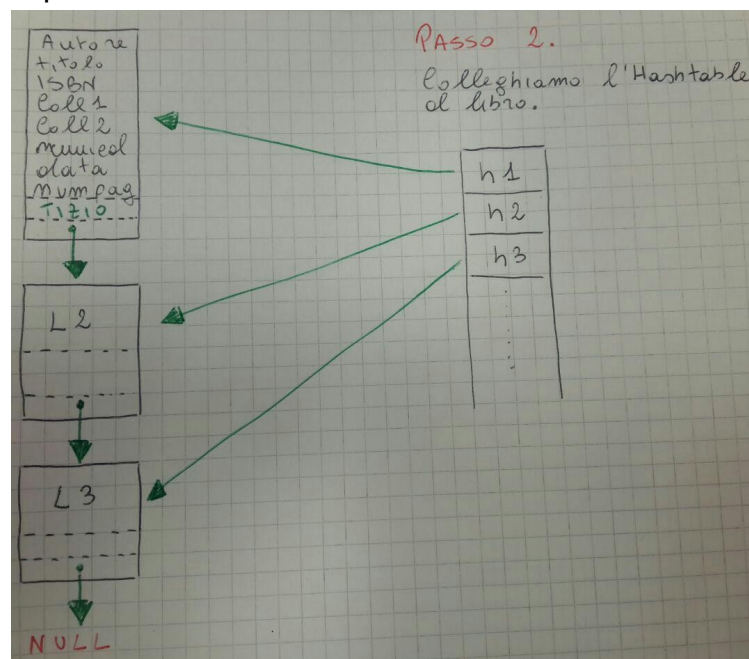 Autore
titolo
ISBN
Coll1
Coll2
numcol
data
numpag
TIZIO
L2
L3
NULL
PASSO 2.
Colleghiamo l'Hashtable
al libro.
h1
h2
h3